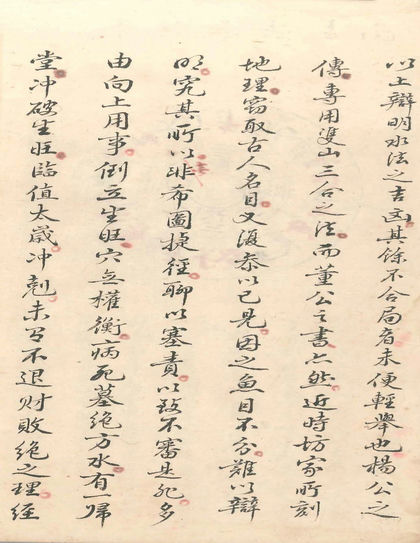 以上辯明水法之吉凶其餘不合局者未便輕舉也楊公之
傳專用雙山三合之法而董公之書亦然近時坊家所刻
地理竊取古人名目又復參以己見因之魚目不分難以辯
明究其所以非希圖捷徑聊以塞責以致不審是非多
由向上用事倒立生旺穴無權衡病死墓絕方水有一歸
堂冲破生旺臨值太歲冲剋未有不退财敗絕之理經